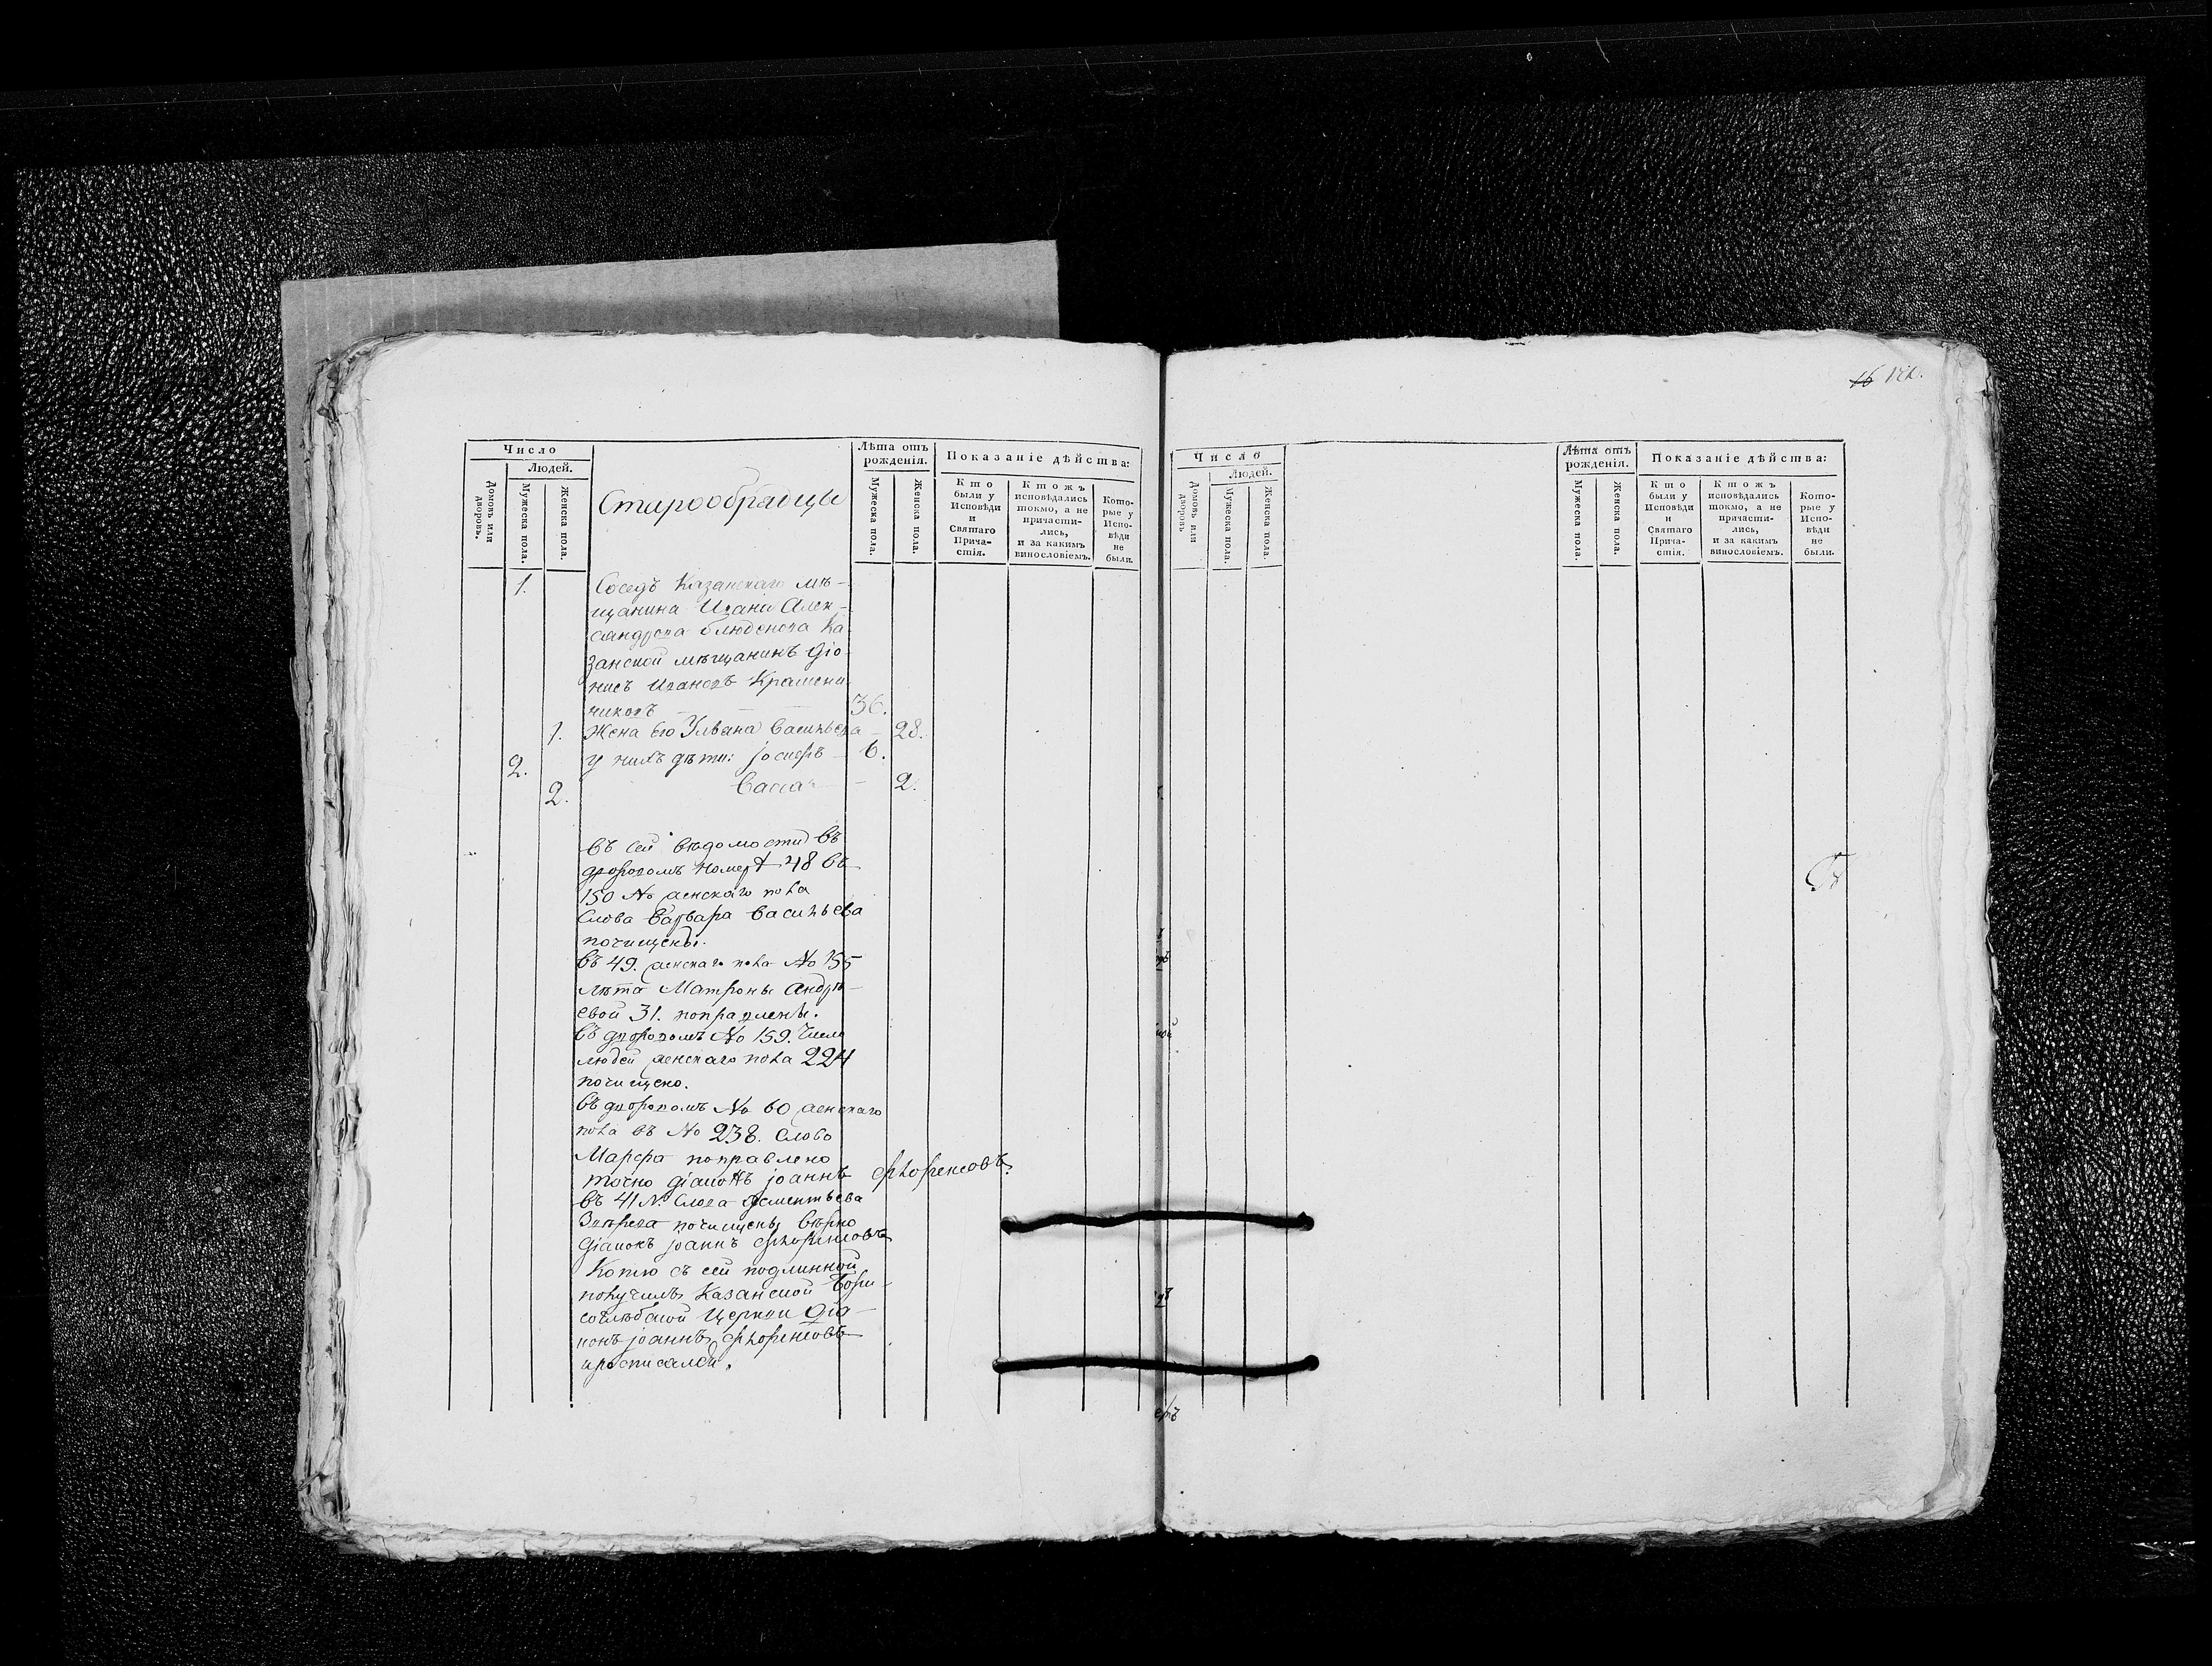 16
Число
Людей.
Домовъ или дворовъ.
Мужеска пола.
Женска пола.
Старообрядцы
Лѣта отъ рожденія.
Мужеска пола.
Женска пола.
Показаніе дѣйства:
Кто были у Исповѣди и Святаго Прича-стія.
Ктожъ исповѣдались токмо, а не причасти-лись, и за какимъ винословіемъ.
Кото-рые у Испо-вѣди не были.
1. Соседъ Казанскаго мѣ-
щанина Ивана Алек-
сандрова Блюденова Ка
занской мѣщанинъ Діо
нисъ Ивановъ Крашени
никовъ 36.
1. Жена его Ульяна Васильева 28.
2. у нихъ дѣти: іосифъ 6.
2. Васса 2.
Въ сей вѣдомости въ
дворовомъ номерѣ 48 въ
150 № женскаго пола
Слова Варвара Васильева
почищены.
Въ 49. женскаго пола № 155
лѣта Матроны Андрѣ-
евой 31. поправлены.
Въ дворовомъ № 159. Число
людей женскаго пола 224
почищено.
Въ дворовомъ № 60 женскаго
пола въ № 238. Слово
Марфа поправлено
точно діаконъ іоаннъ Флоренсовъ.
Въ 41 № Слова Дементьева
почищены вѣрно
Діаконъ іоаннъ Флоренсовъ
Копію съ сей подлинной
получилъ Казанской Бори-
соглѣбской Церкви Діа-
конъ іоаннъ Флоренсовъ
и росписался.
Число
Людей.
Домовъ или дворовъ.
Мужеска пола.
Женска пола.
Лѣта отъ рожденія.
Мужеска пола.
Женска пола.
Показаніе дѣйства:
Кто были у Исповѣди и Святаго Прича-стія.
Ктожъ исповѣдались токмо, а не причасти-лись, и за какимъ винословіемъ.
Кото-рые у Испо-вѣди не были.